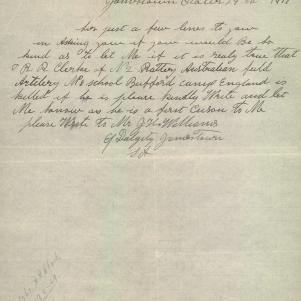 Jamestown
for just a few lines to you
in Asking you if you would Be so
kind as to let Me if it is realy true that
R R Clerke of No 2 Battery Australian field
Artilery No school Bufford camp England is
killed if he is please kindly Write and let
Me know as he is a first Cuson to Me
please Write to Mr J H Williams
C/ Dalgety Jamestown
S A